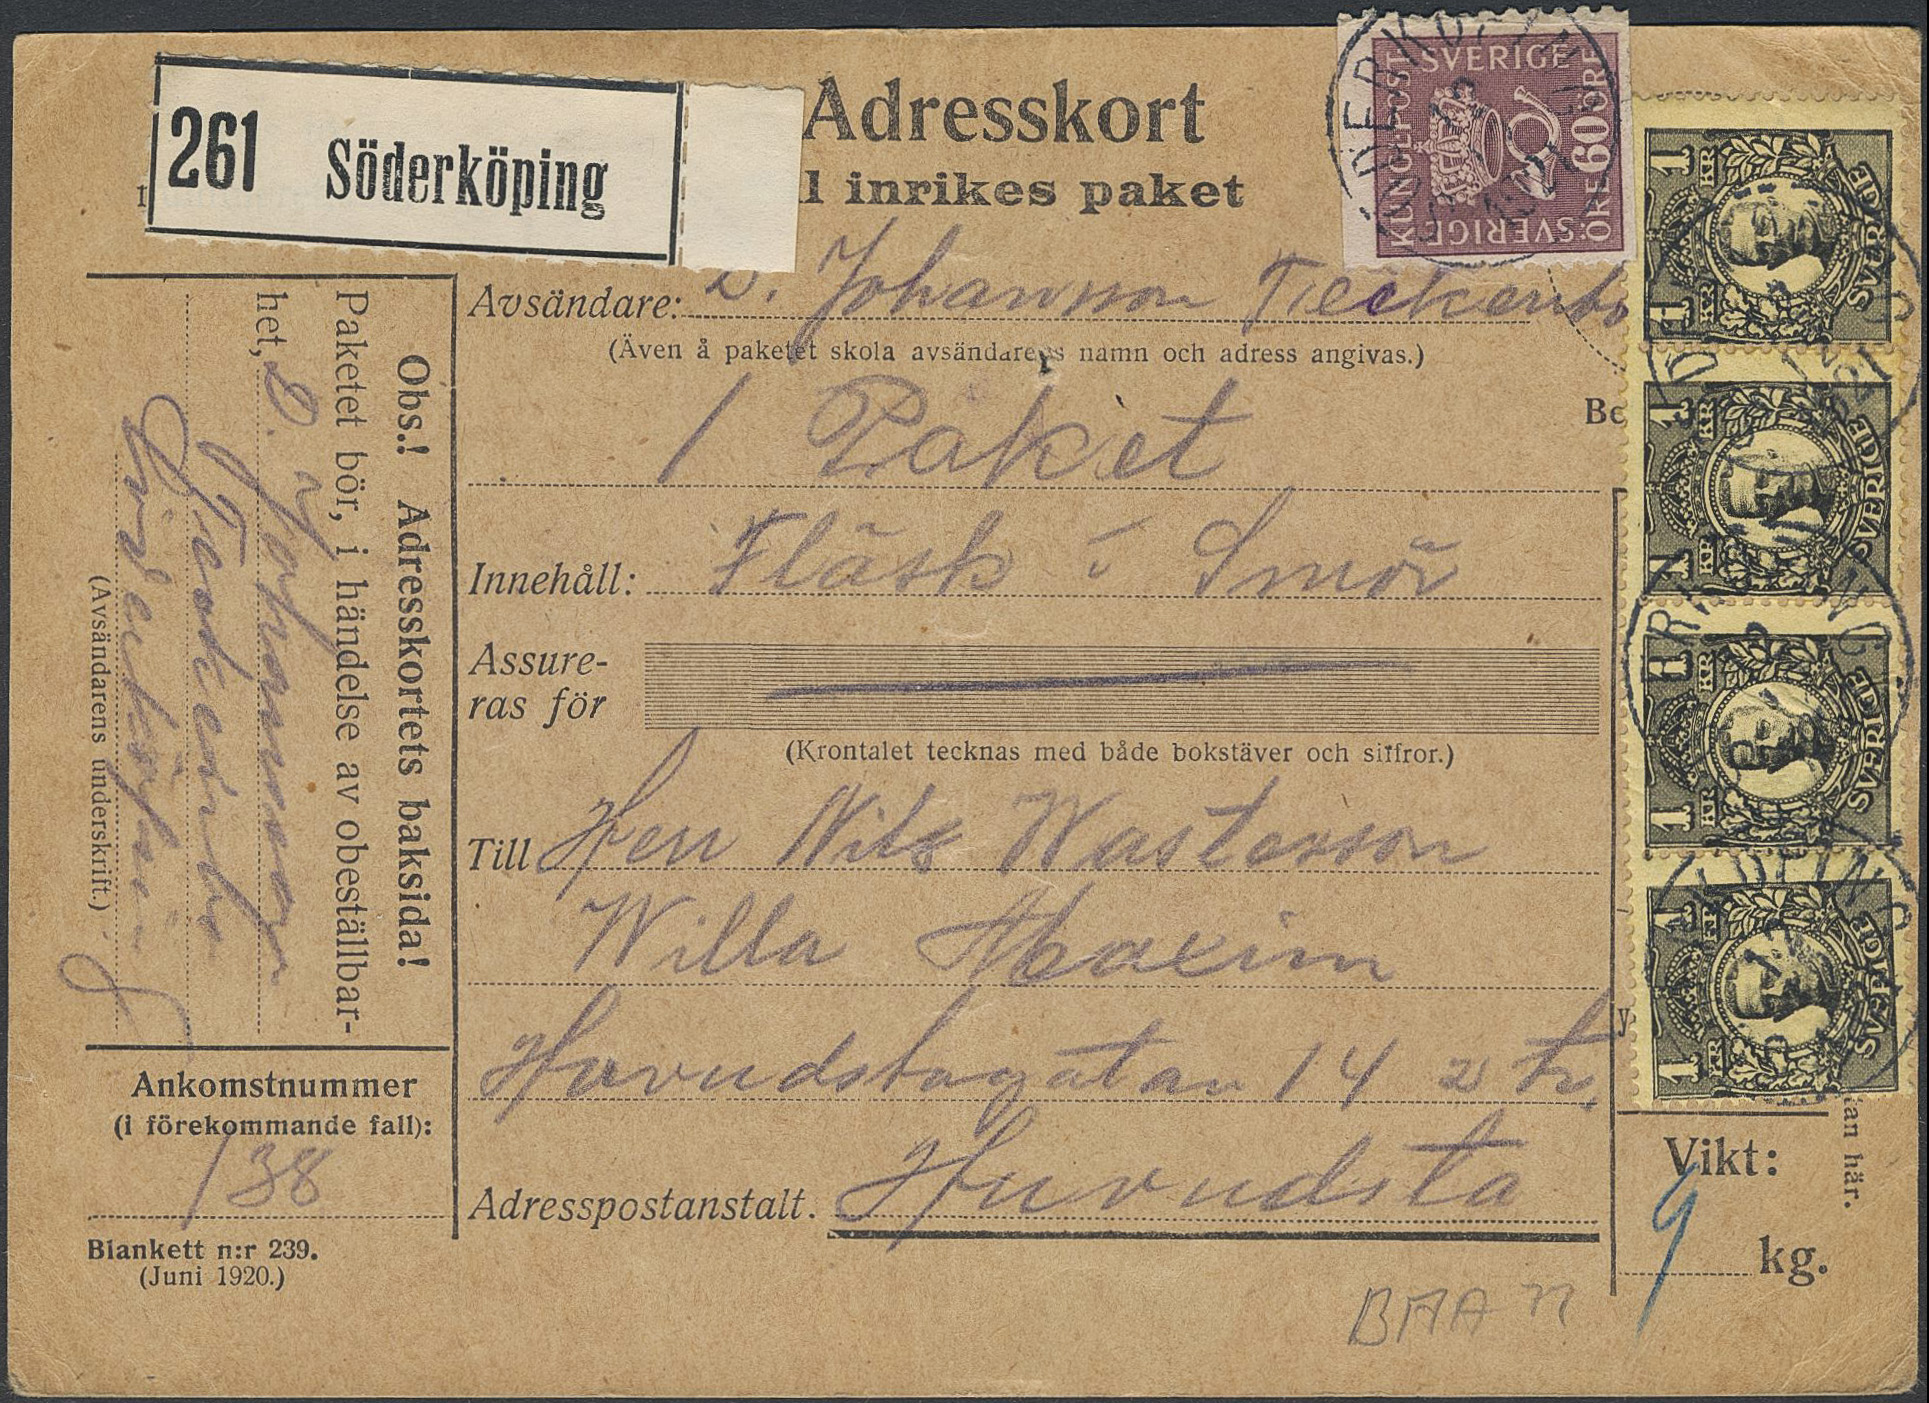 261 Söderköping
Adresskort
l inrikes paket
KUNGL POST SVERIGE
ÖRE 60 ÖRE
SVERIGE
1 KR SVERIGE 1 KR
1 KR SVERIGE 1 KR
1 KR SVERIGE 1 KR
1 KR SVERIGE 1 KR
Avsändare: D. Johannson
(Även å paketet skola avsändarens namn och adress angivas.)
Be
1 Paket
Innehåll: Fläsk & Smör
Assure-
ras för
(Krontalet tecknas med både bokstäver och siffror.)
Till Herr Nils Wastesson
Willa Maxim
Huvudstagatan 14 2 tr.
Adresspostanstalt. Huvudsta
Vikt:
9 kg.
tan här.
Obs.! Adresskortets baksida!
Paketet bör, i händelse av obeställbar-
het, D. Johannson
Söderköping
(Avsändarens underskrift.)
Ankomstnummer
(i förekommande fall):
138
Blankett n:r 239.
(Juni 1920.)